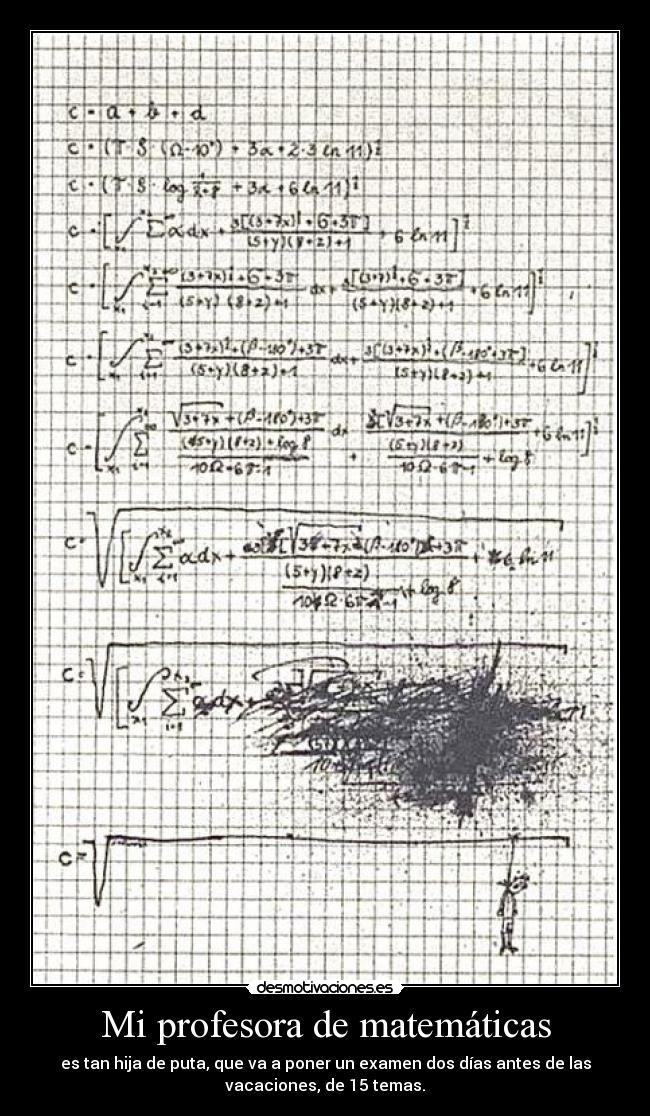 c = a + b + d
c = (π·8·(Ω-10°) + 3a+2·3 ln 11)½
c = (π·8·log + 3a + 6 ln 11)½
c = [∫ Σ α dx + 3[(3+7x)½+6+3π] / (5+y)(8+z)+1 + 6 ln 11]½
c = [∫ Σ (3+7x)½+6+3π / (5+y)(8+z)+1 dx + 3[(3+7)½+6+3π] / (5+y)(8+z)+1 +6 ln 11]½
c = [∫ Σ (3+7x)½+(β-180°)+3π / (5+y)(8+z)+1 dx + 3[(3+7x)½+(β-180°+3π] / (5+y)(8+z)+1 +6 ln 11]½
c = [∫ Σ √3+7x +(β-180°)+3π / (5+y)(8+z)+log 8 / 10Ω+6π-1 dx + 3[√3+7x +(β-180°)+3π / (5+y)(8+z) / 10Ω·6π-1 + log 8 +6 ln 11]½
c = √[∫ Σ α dx + √3+7x (β-180°) +3π / (5+y)(8+z) / 10Ω·6π-1 + log 8 + 6 ln 11
c = √[∫ Σ α dx +
c = √
desmotivaciones.es
Mi profesora de matemáticas
es tan hija de puta, que va a poner un examen dos días antes de las
vacaciones, de 15 temas.